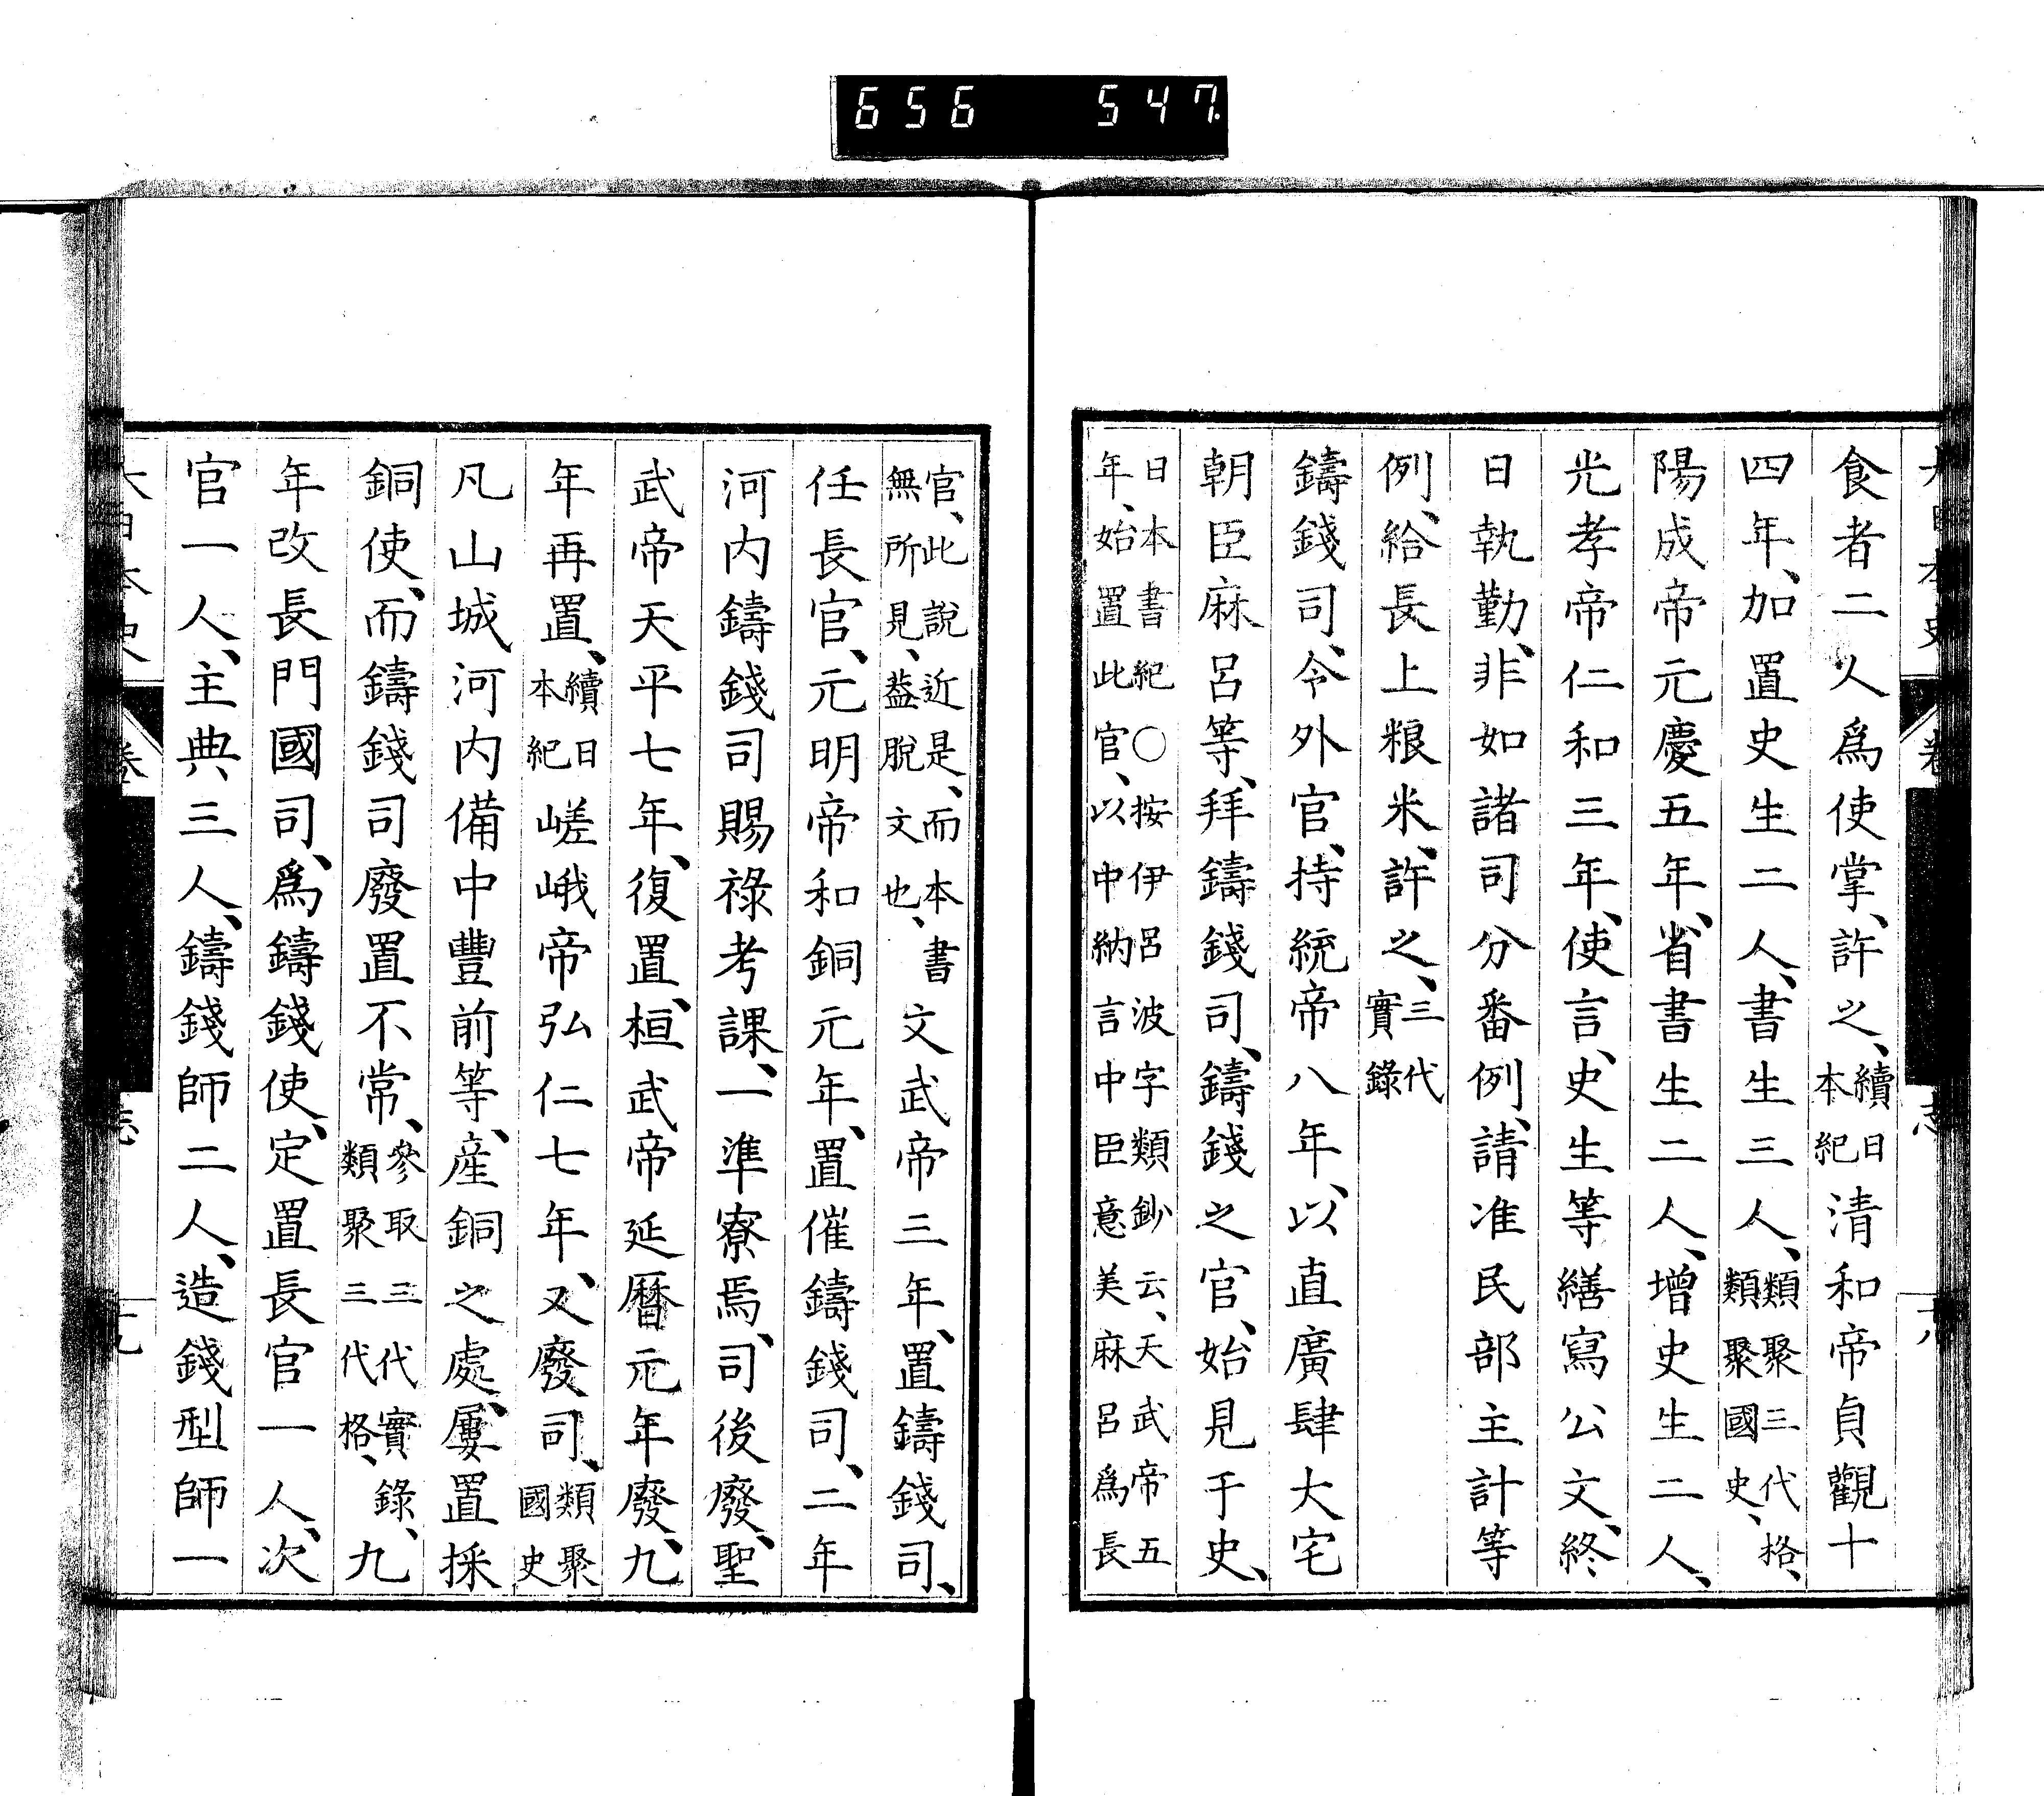 656 547
食者二人爲使掌、許之、續日本紀清和帝貞觀十
四年、加置史生二人、書生三人、類聚三代格、類聚國史、
陽成帝元慶五年、省書生二人、增史生二人、
光孝帝仁和三年、使言、史生等繕寫公文、終
日執勤、非如諸司分番例、請准民部主計等
例、給長上粮米、許之、三代實錄
鑄錢司、令外官、持統帝八年、以直廣肆大宅
朝臣麻呂等、拜鑄錢司、鑄錢之官、始見于史、
日本書紀○按伊呂波字類鈔云、天武帝五
年、始置此官、以中納言中臣意美麻呂爲長
官、此說近是、而本書
無所見、葢脫文也、
文武帝三年、置鑄錢司、
任長官、元明帝和銅元年、置催鑄錢司、二年
河内鑄錢司賜祿考課、一準寮焉、司後廢、聖
武帝天平七年、復置、桓武帝延曆元年廢、九
年再置、續日本紀嵯峨帝弘仁七年、又廢司、類聚國史
凡山城河内備中豐前等、產銅之處、屢置採
銅使、而鑄錢司廢置不常、參取三代實錄、類聚三代格、九
年改長門國司、爲鑄錢使、定置長官一人、次
官一人、主典三人、鑄錢師二人、造錢型師一